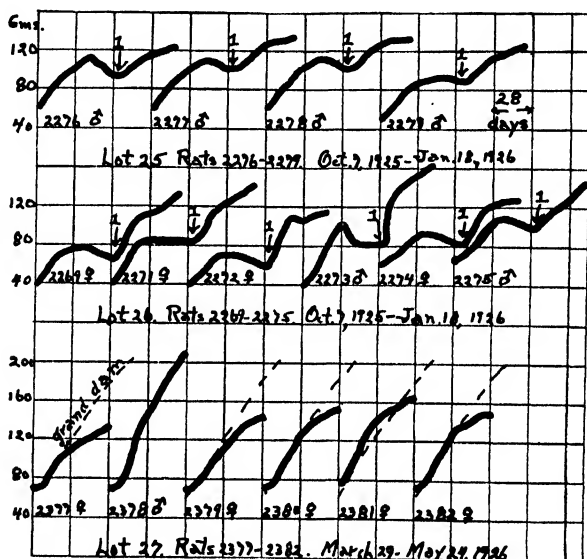 Gms.
120
80
40
1
1
1
1
28
days
2276 ♂ 2277 ♂ 2278 ♂ 2279 ♂
Lot 25 Rats 2276-2279. Oct. 7, 1925-Jan. 18, 1926
120
80
40
1
1
1
1
1
1
2269 ♀ 2271 ♀ 2272 ♀ 2273 ♂ 2274 ♀ 2275 ♂
Lot 26. Rats 2269-2275. Oct. 7, 1925-Jan. 18, 1926
200
160
120
80
40
grand dam
2377 ♀ 2378 ♂ 2379 ♀ 2380 ♀ 2381 ♀ 2382 ♀
Lot 27. Rats 2377-2382. March 29-May 29, 1926